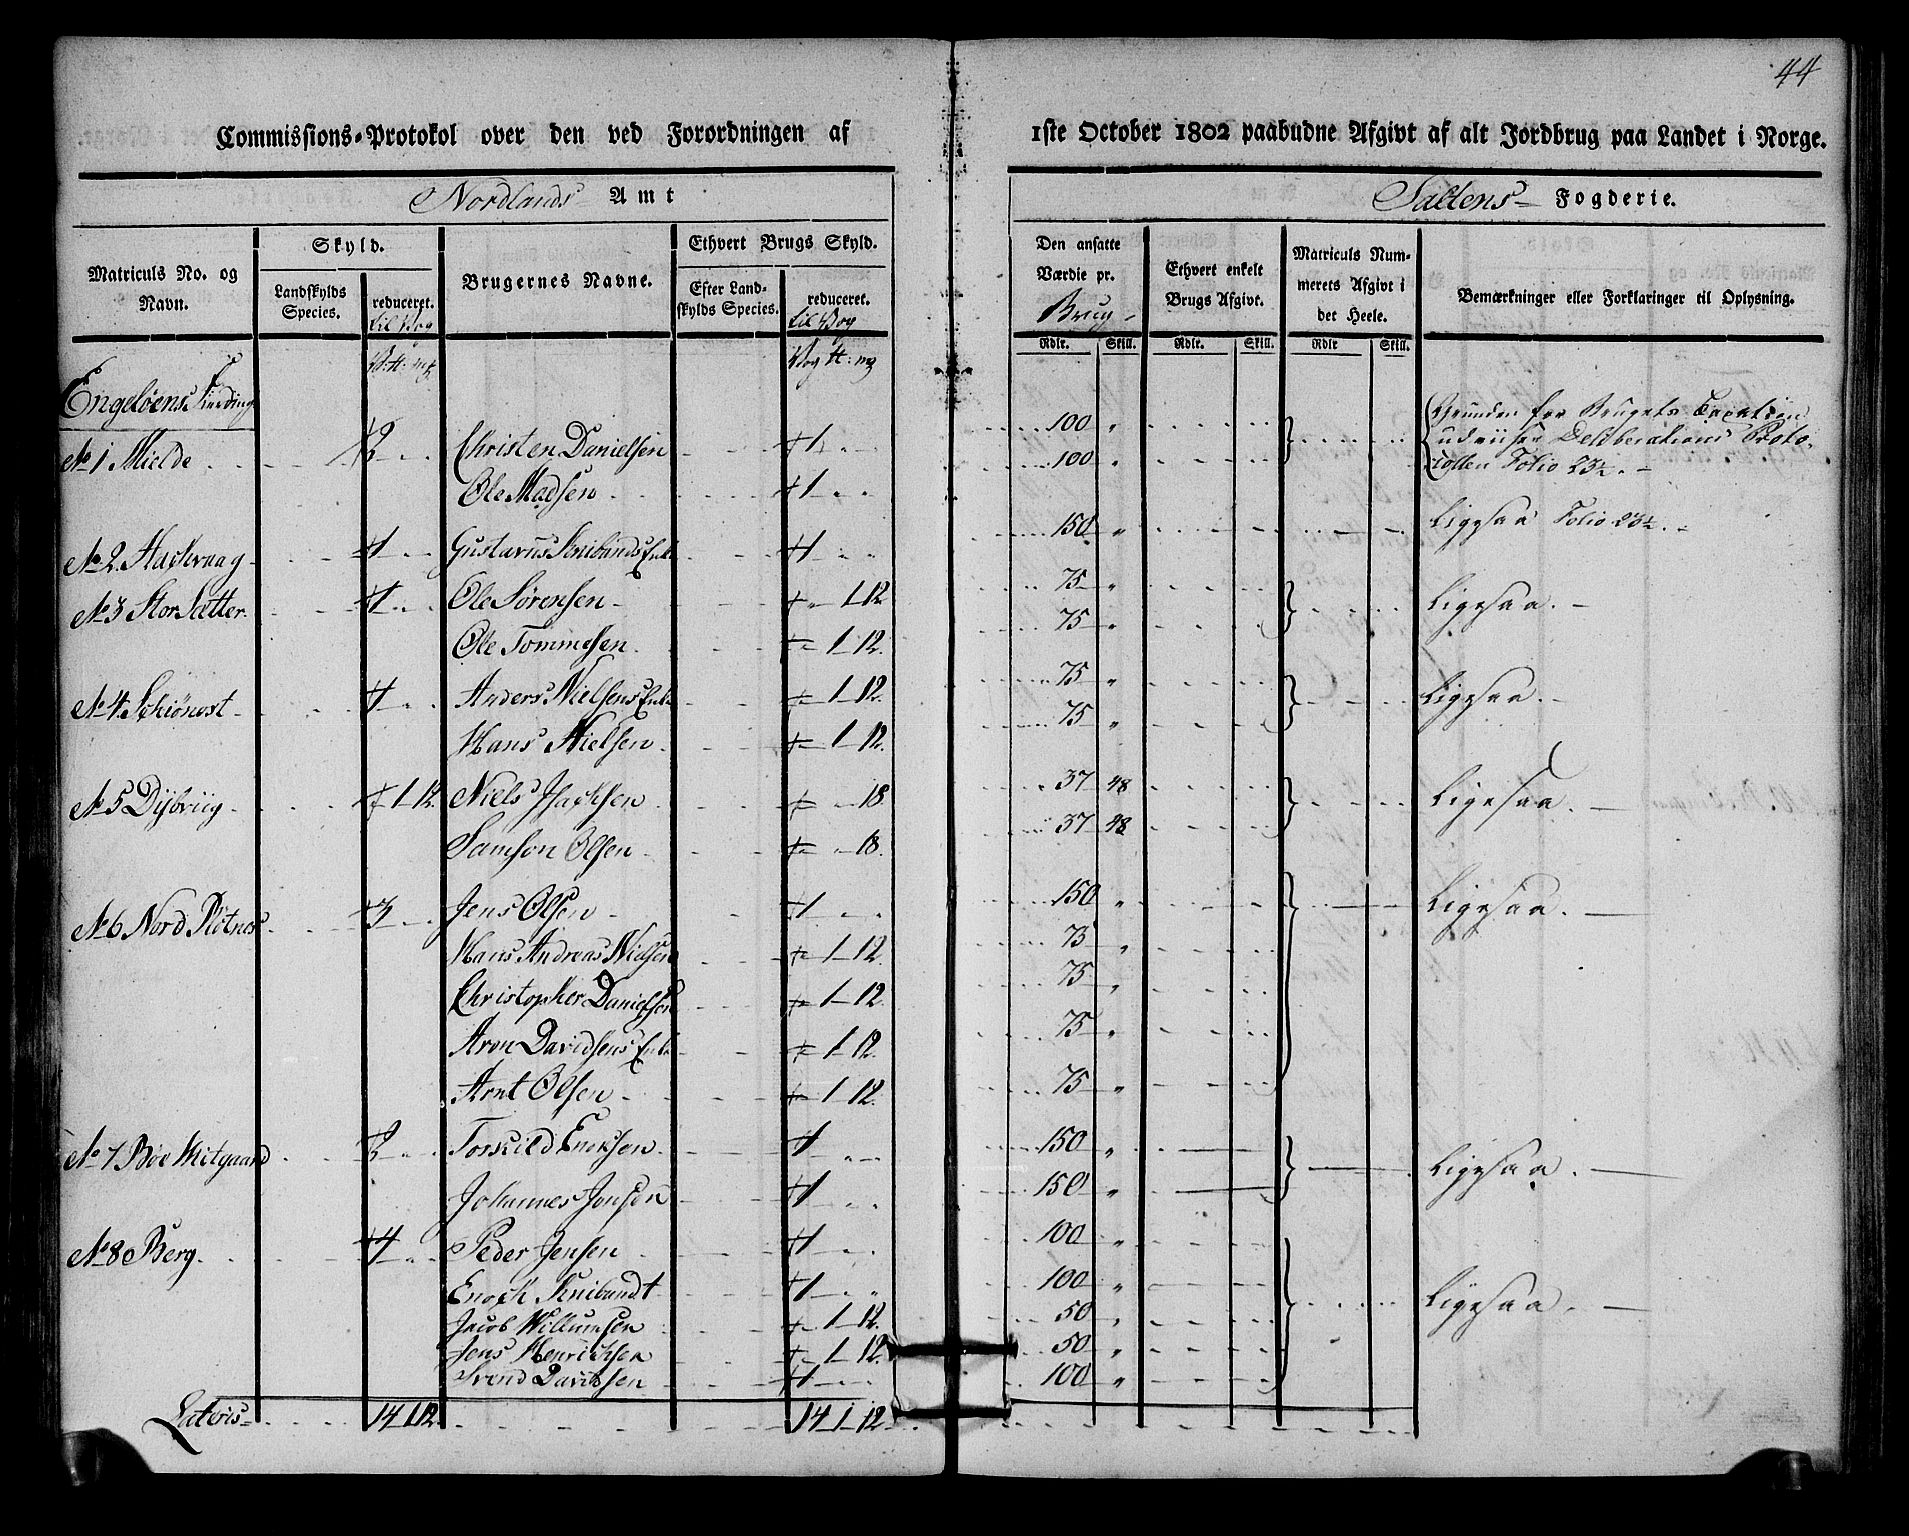 44
Commissions-Protokol over den ved Forordningen af 1ste October 1802 paabudne Afgivt af alt Jordbrug paa Landet i Norge.
Nordlands Amt Saltens Fogderie.
Matriculs No. og Navn.
Skyld.
Landskylds Species.
reduceret. til Vog
Brugernes Navne.
Ethvert Brugs Skyld.
Efter Landskylds Species.
reduceret. til Vog
Den ansatte Værdie pr. Brug
Ethvert enkelt Brugs Afgivt.
Matriculs Nummerets Afgivt i det Heele.
Bemærkninger eller Forklaringer til Oplysning.
Rdlr. Skill. Rdlr. Skill. Rdlr Skill.
Engelöens Fierding
No 1 Mielde 2 Christen Danielsen 1 100 Grunden for Brugets Taxation
udviiser Deliberations Proto-
Ole Madsen 1 100 collen Folio 23½.
No 2. Hachvaag 1 Gustavus Knibunds Enke 1 150 Ligesaa Folio 23½.
No 3 Stor Sætter 1 Ole Sörensen 1 12 75 Ligesaa.
Ole Tommesen 1 12. 75
No 4 Schiönost 1 Anders Nielsens Enke 1 12. 75 Ligesaa.
Hans Nielsen 1 12. 75
No 5 Dybviig 1 12. Niels Isachsen 18. 37 48 Ligesaa.
Samson Olsen 18. 37 48
No 6 Nord Skotnes 3 Jens Olsen 1 150 Ligesaa.
Hans Andreas Nielsen 1 12. 75
Christopher Danielsen 1 12. 75
Aron Davidsens Enke 1 12. 75
Arnt Olsen 1 12. 75
No 7 Böe Mitgaard 2 Torskild Enoksen 1 150 Ligesaa.
Johannes Jonson 1 150
No 8 Berg 4 Peder Jensen 1 100 Ligesaa.
Enoch Knibundt 1 100
Jacob Willumsen 1 12. 50
Jens Henrichsen 1 12. 50
Svend Davidsen 1 100
Lateris 14 1 12. 14 1 12